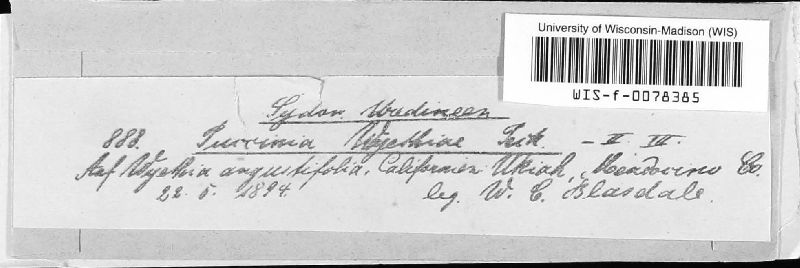 University of Wisconsin-Madison (WIS)
WIS-f-0078385
Sydow. Uredineen
888. Puccinia Wyethiae Peck. – II. III.
Auf Wyethia angustifolia, Californien: Ukiah, Mendocino Co.
22. 5. 1894. leg. W. C. Blasdale.